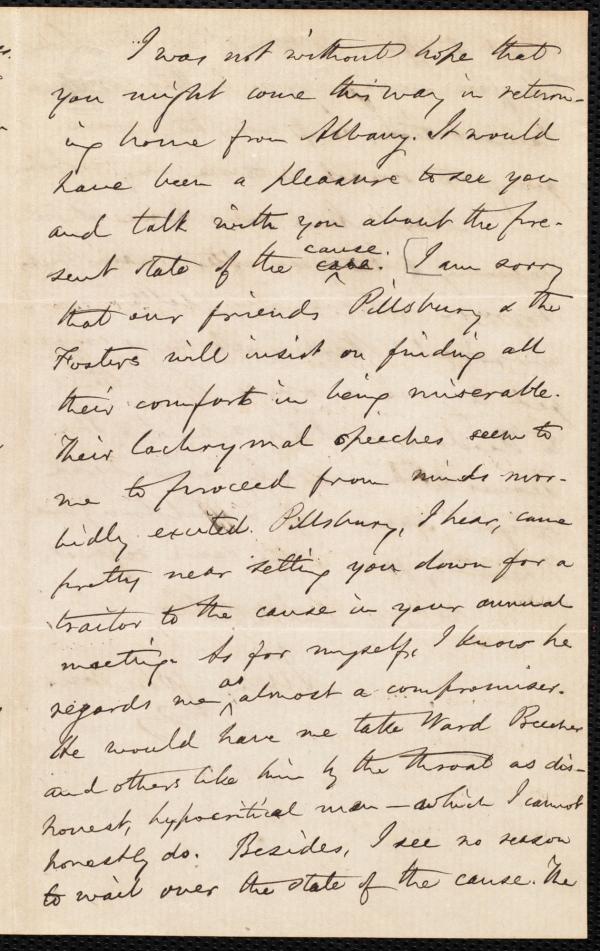 I was not without hope that
you might come this way in return-
ing home from Albany. It would
have been a pleasure to see you
and talk with you about the pre-
sent state of the cause. [I am sorry
that our friends Pillsbury & the
Fosters will insist on finding all
their comfort in being miserable.
Their lachrymal speeches seem to
me to proceed from minds mor-
bidly excited. Pillsbury, I hear, came
pretty near setting you down for a
traitor to the cause in your annual
meeting. As for myself, I know he
regards me as almost a compromiser.
He would have me take Ward Beecher
and others like him by the throat as dis-
honest, hypocritical men — which I cannot
honestly do. Besides, I see no reason
to wail over the state of the cause. The